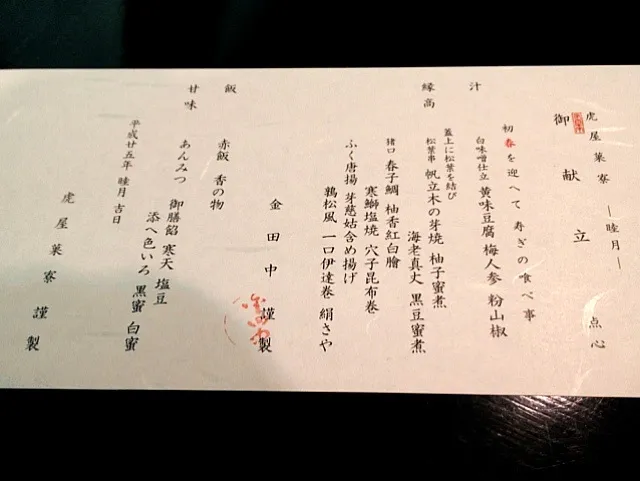 虎屋菓寮 ―睦月― 点心
御献立
初春を迎へて 寿ぎの食べ事
汁
白味噌仕立 黄味豆腐 梅人参 粉山椒
縁高
蓋上に松葉を結び
松葉串 帆立木の芽焼 柚子蜜煮
海老真丈 黒豆蜜煮
猪口 春子鯛 柚香紅白膾
寒鰤塩焼 穴子昆布巻
ふく唐揚 芽慈姑含め揚げ
鶉松風 一口伊達巻 絹さや
金田中 謹製
飯
赤飯 香の物
甘味
あんみつ 御膳餡 寒天 塩豆
添へ色いろ 黒蜜 白蜜
平成廿五年 睦月 吉日
虎屋菓寮 謹製